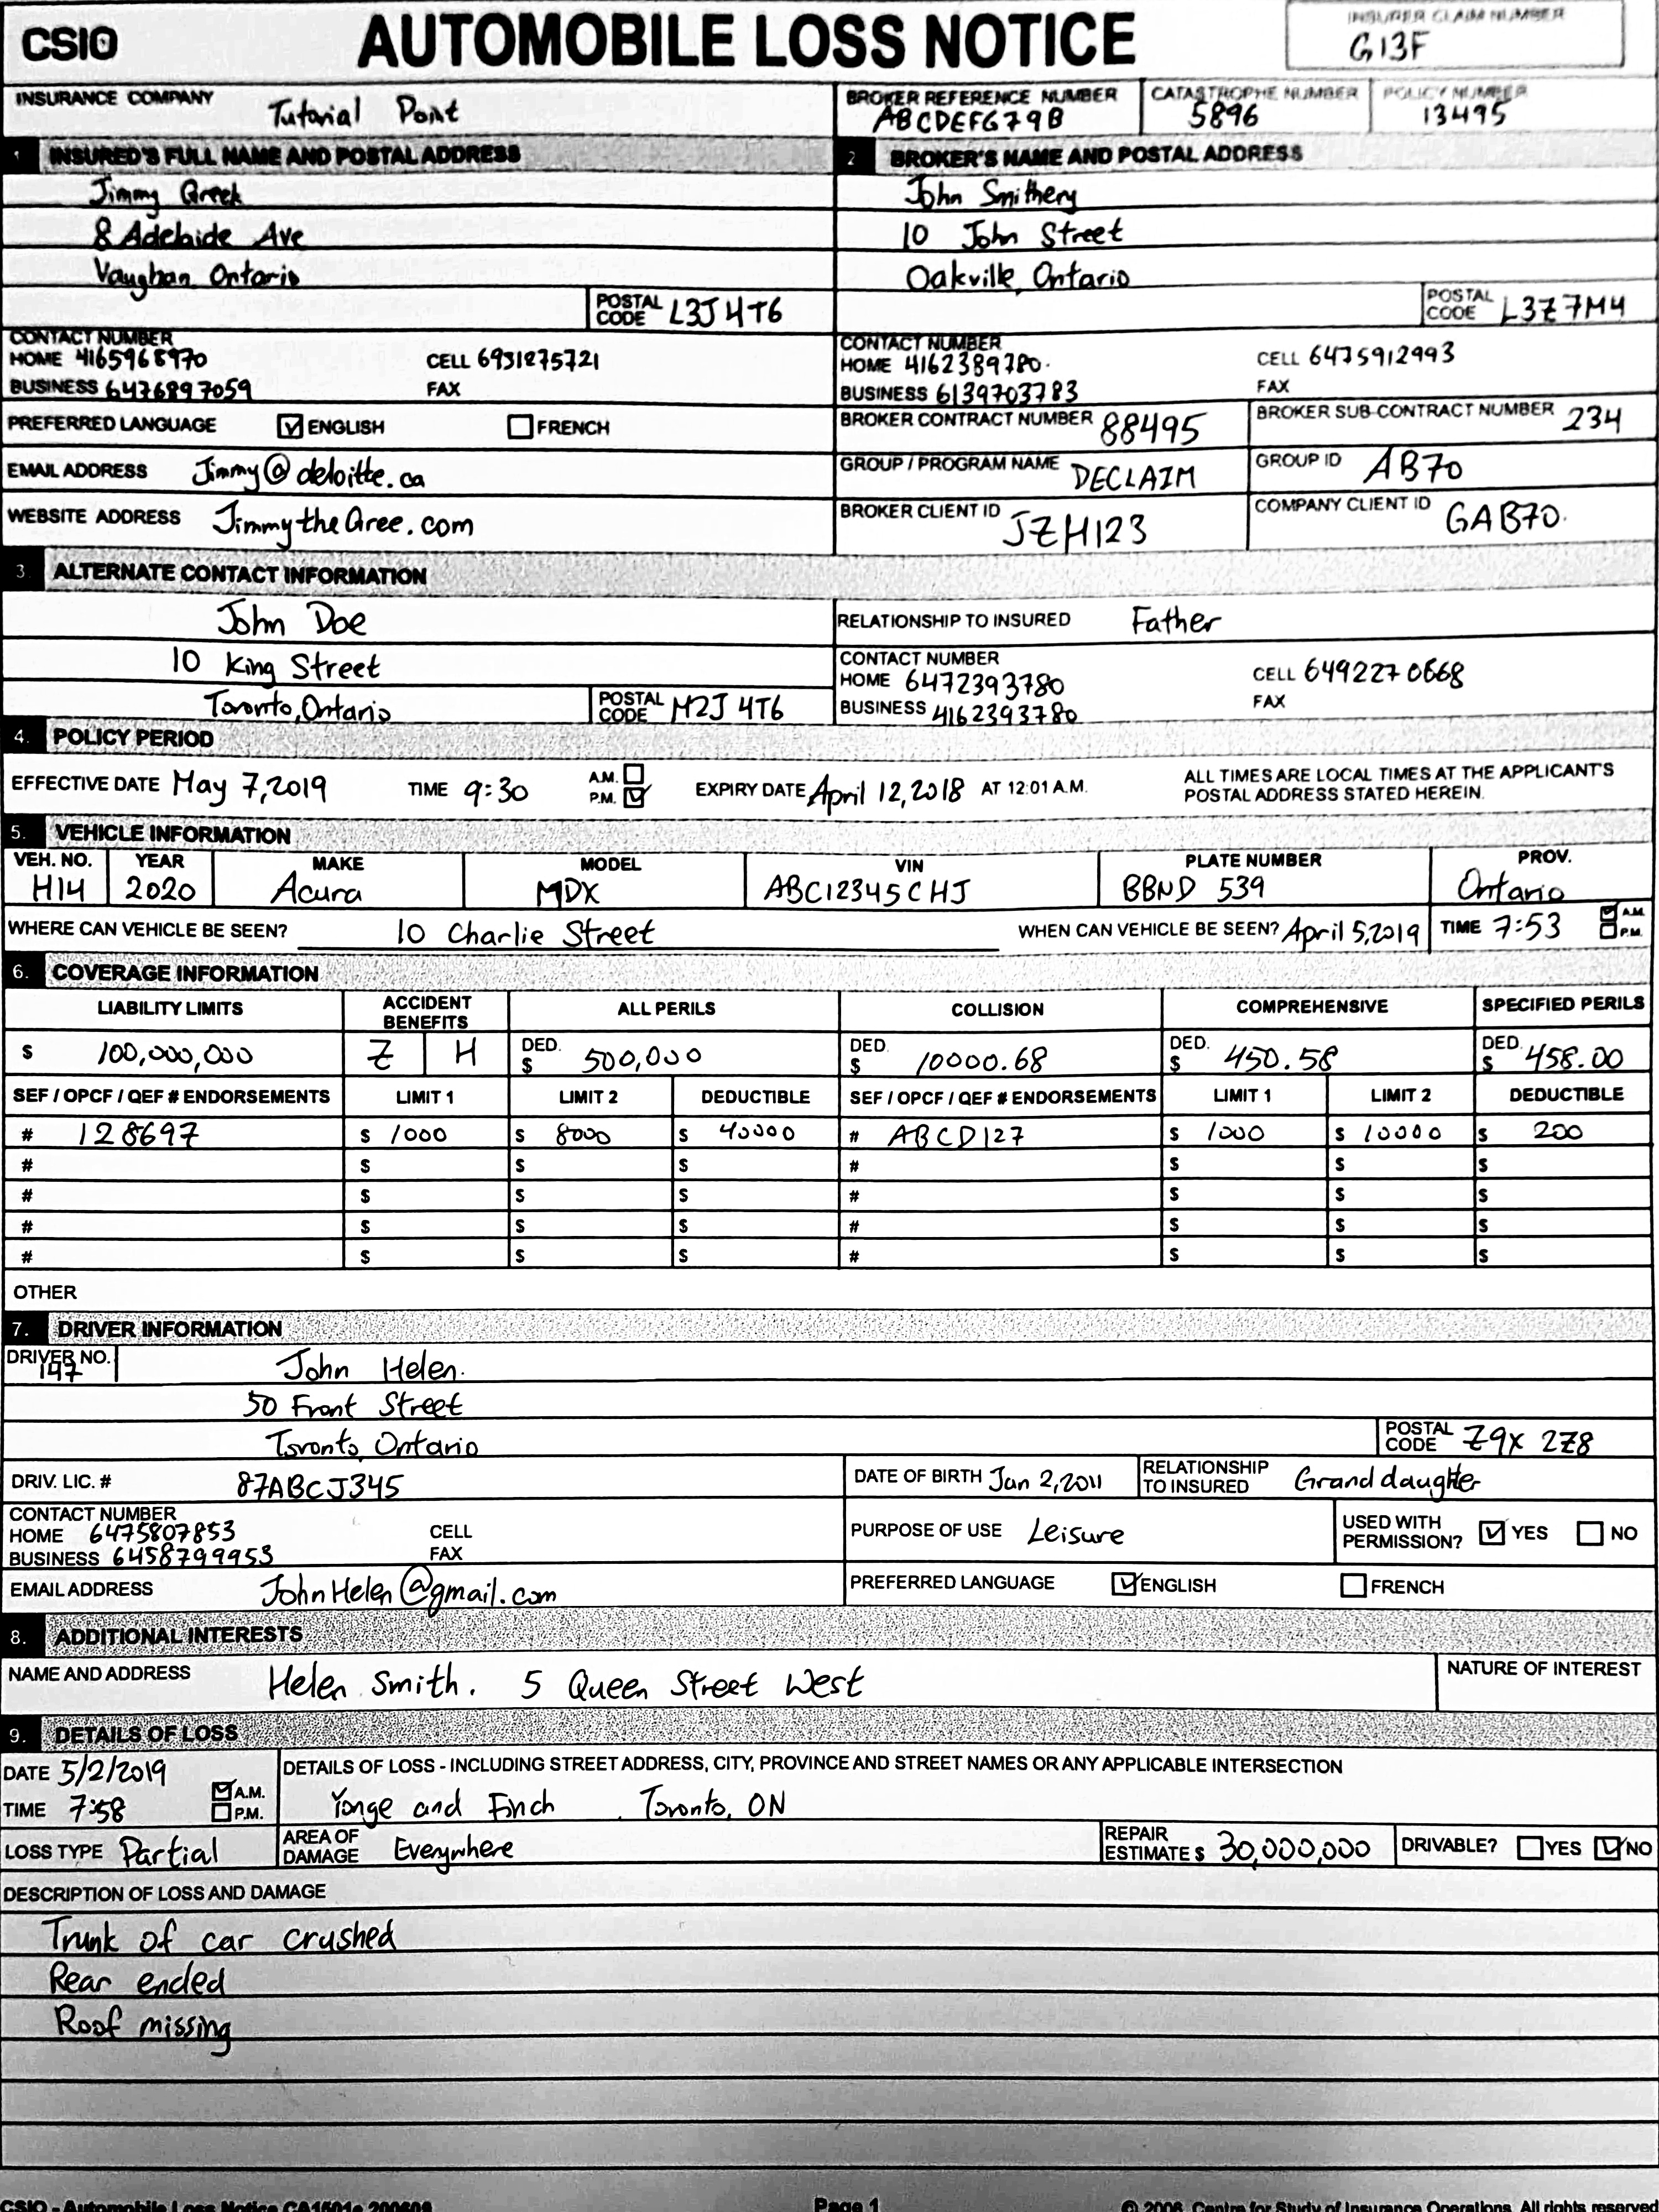 CSIO
AUTOMOBILE LOSS NOTICE
INSURER CLAIM NUMBER
G13F
INSURANCE COMPANY Tutorial Point
BROKER REFERENCE NUMBER ABCDEFG79B
CATASTROPHE NUMBER 5896
POLICY NUMBER 13495
1 INSURED'S FULL NAME AND POSTAL ADDRESS
Jimmy Greek
8 Adelaide Ave
Vaughan, Ontario
POSTAL CODE L3J 4T6
CONTACT NUMBER
HOME 4165968970 CELL 6931875721
BUSINESS 6476897059 FAX
PREFERRED LANGUAGE ENGLISH FRENCH
EMAIL ADDRESS Jimmy@deloitte.ca
WEBSITE ADDRESS JimmytheGree.com
2 BROKER'S NAME AND POSTAL ADDRESS
John Smithery
10 John Street
Oakville, Ontario
POSTAL CODE L3Z 7M4
CONTACT NUMBER
HOME 4162389780. CELL 6475912993
BUSINESS 6139703783 FAX
BROKER CONTRACT NUMBER 88495 BROKER SUB-CONTRACT NUMBER 234
GROUP / PROGRAM NAME DECLAIM GROUP ID AB70
BROKER CLIENT ID JZH123 COMPANY CLIENT ID GAB70.
3. ALTERNATE CONTACT INFORMATION
John Doe
10 King Street
Toronto, Ontario
POSTAL CODE M2J 4T6
RELATIONSHIP TO INSURED Father
CONTACT NUMBER
HOME 6472393780 CELL 6492270668
BUSINESS 4162393780 FAX
4. POLICY PERIOD
EFFECTIVE DATE May 7, 2019 TIME 9:30 A.M. P.M. EXPIRY DATE April 12, 2018 AT 12:01 A.M. ALL TIMES ARE LOCAL TIMES AT THE APPLICANT'S
POSTAL ADDRESS STATED HEREIN.
5. VEHICLE INFORMATION
VEH. NO. YEAR MAKE MODEL VIN PLATE NUMBER PROV.
H14 2020 Acura MDX ABC12345CHJ BBND 539 Ontario
WHERE CAN VEHICLE BE SEEN? 10 Charlie Street WHEN CAN VEHICLE BE SEEN? April 5, 2019 TIME 7:53 A.M. P.M.
6. COVERAGE INFORMATION
LIABILITY LIMITS ACCIDENT BENEFITS ALL PERILS COLLISION COMPREHENSIVE SPECIFIED PERILS
$ 100,000,000 Z H DED. $ 500,000 DED. $ 10000.68 DED. $ 450.58 DED. $ 458.00
SEF / OPCF / QEF # ENDORSEMENTS LIMIT 1 LIMIT 2 DEDUCTIBLE SEF / OPCF / QEF # ENDORSEMENTS LIMIT 1 LIMIT 2 DEDUCTIBLE
# 128697 $ 1000 $ 8000 $ 40000 # ABCD127 $ 1000 $ 10000 $ 200
# $ $ $ # $ $ $
# $ $ $ # $ $ $
# $ $ $ # $ $ $
# $ $ $ # $ $ $
OTHER
7. DRIVER INFORMATION
DRIVER NO. 147
John Helen.
50 Front Street
Toronto, Ontario
POSTAL CODE Z9X 2Z8
DRIV. LIC. # 87ABCJ345 DATE OF BIRTH Jan 2, 2011 RELATIONSHIP TO INSURED Grand daughter
CONTACT NUMBER
HOME 6475807853 CELL
BUSINESS 6458799953 FAX
PURPOSE OF USE Leisure USED WITH PERMISSION? YES NO
EMAIL ADDRESS JohnHelen@gmail.com PREFERRED LANGUAGE ENGLISH FRENCH
8. ADDITIONAL INTERESTS
NAME AND ADDRESS Helen Smith. 5 Queen Street West NATURE OF INTEREST
9. DETAILS OF LOSS
DATE 5/2/2019
TIME 7:58 A.M. P.M.
DETAILS OF LOSS - INCLUDING STREET ADDRESS, CITY, PROVINCE AND STREET NAMES OR ANY APPLICABLE INTERSECTION
Yonge and Finch Toronto, ON
LOSS TYPE Partial AREA OF DAMAGE Everywhere REPAIR ESTIMATE $ 30,000,000 DRIVABLE? YES NO
DESCRIPTION OF LOSS AND DAMAGE
Trunk of car crushed
Rear ended
Roof missing
CSIO - Automobile Loss Notice CA1501e 200609 Page 1 © 2006, Centre for Study of Insurance Operations. All rights reserved